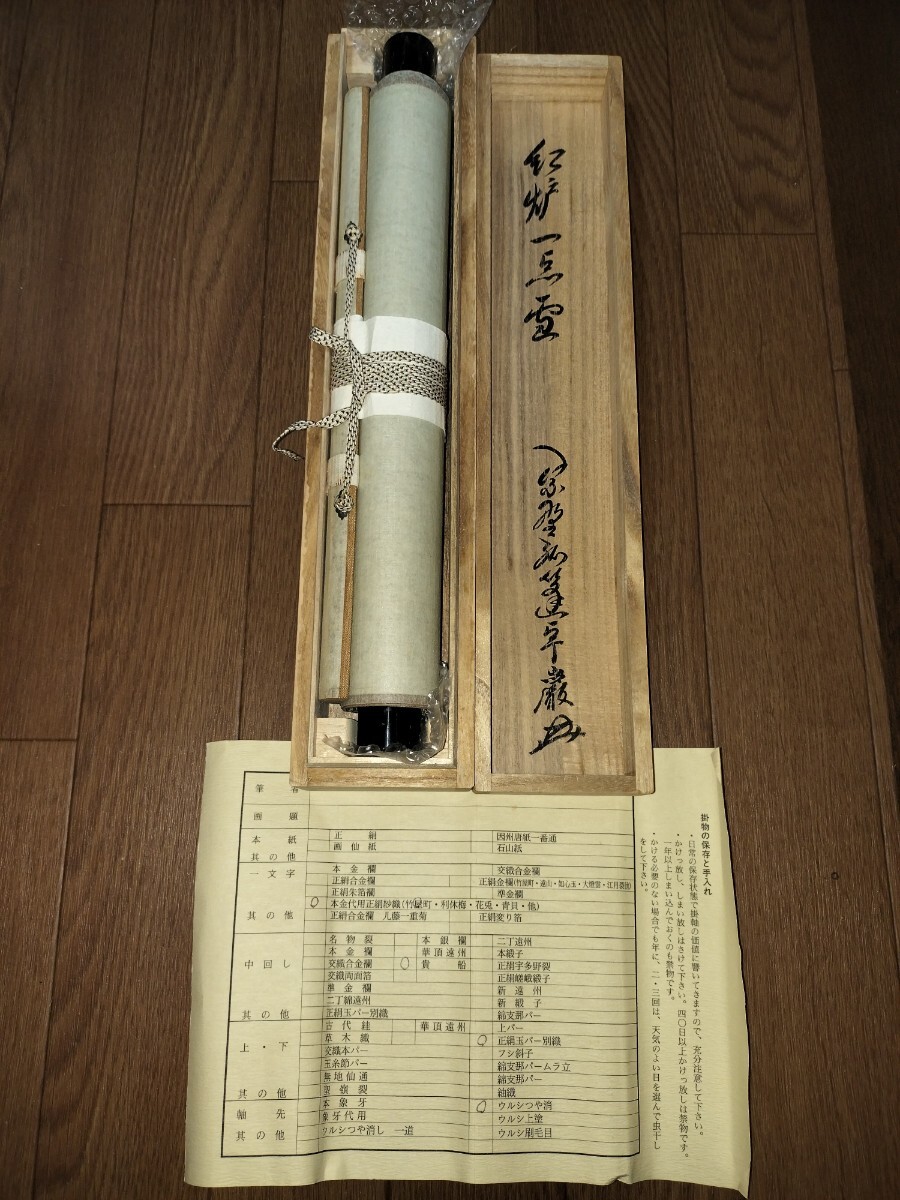 紅炉一点雪
紫野弧篷卓巌
筆者
画題
本紙
正絹
因州唐紙一番通
画仙紙
石山紙
其の他
一文字
本金襴
交織合金襴
正絹合金襴
正絹金襴(竹屋町・遠山・如心玉・大燈雲・江月菱他)
正絹朱箔襴
準金襴
本金代用正絹紗織(竹屋町・利休梅・花兎・青貝・他)
其の他
正絹合金襴 凡藤一重菊
正絹変り箔
中回し
名物裂
本銀襴
二丁遠州
本金襴
華頂遠州
本緞子
交織合金襴
貴船
正絹宇多野裂
交織両面箔
正絹嵯峨緞子
準金襴
新遠州
二丁綿遠州
新緞子
其の他
正絹玉パー別織
綿支那パー
上・下
古代絓
華頂遠州
上パー
草木織
正絹玉パー別織
交織本パー
フシ斜子
玉糸節パー
綿支那パームラ立
無地仙通
綿支那パー
其の他
紬織
軸先
本象牙
ウルシつや消
象牙代用
ウルシ上塗
其の他
ウルシつや消し 一道
ウルシ刷毛目
掛物の保存と手入れ
・日常の保存状態で掛軸の価値に響いてきますので、充分注意して下さい。
・かけっ放し、しまい放しはさけて下さい。四〇日以上かけっ放しは禁物です。
一年以上しまい込んでおくのも禁物です。
・かける必要のない場合でも年に、二・三回は、天気のよい日を選んで虫干し
をして下さい。